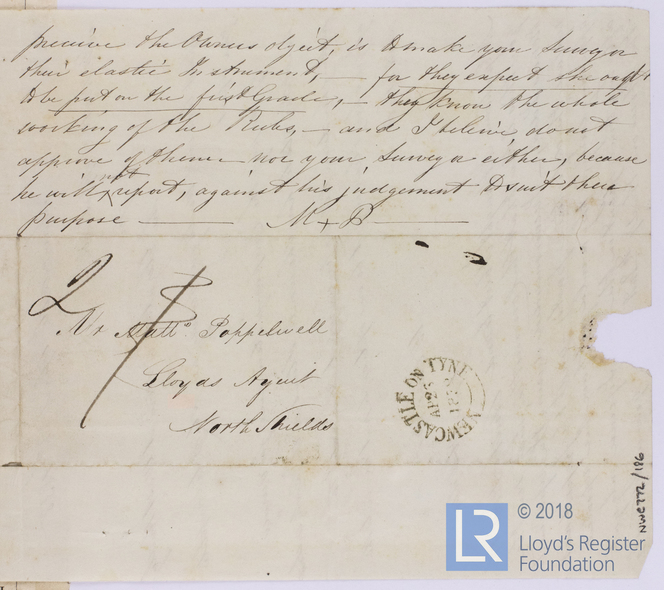 perceive the Owners object, is to make your Surveyor
their elastic Instrument, — for they expect she ought
to be put on the first Grade, — they know the whole
working of the Rules, — and I believe do not
approve of them — nor your Surveyor either, because
he will not report, against his judgement to suit their
purpose — M + B —
2
Mr Matt.w Poppelwell
Lloyds Agent
North Shields
NEWCASTLE ON TYNE
AP 2
NWC772/186
LR
© 2018
Lloyd's Register
Foundation